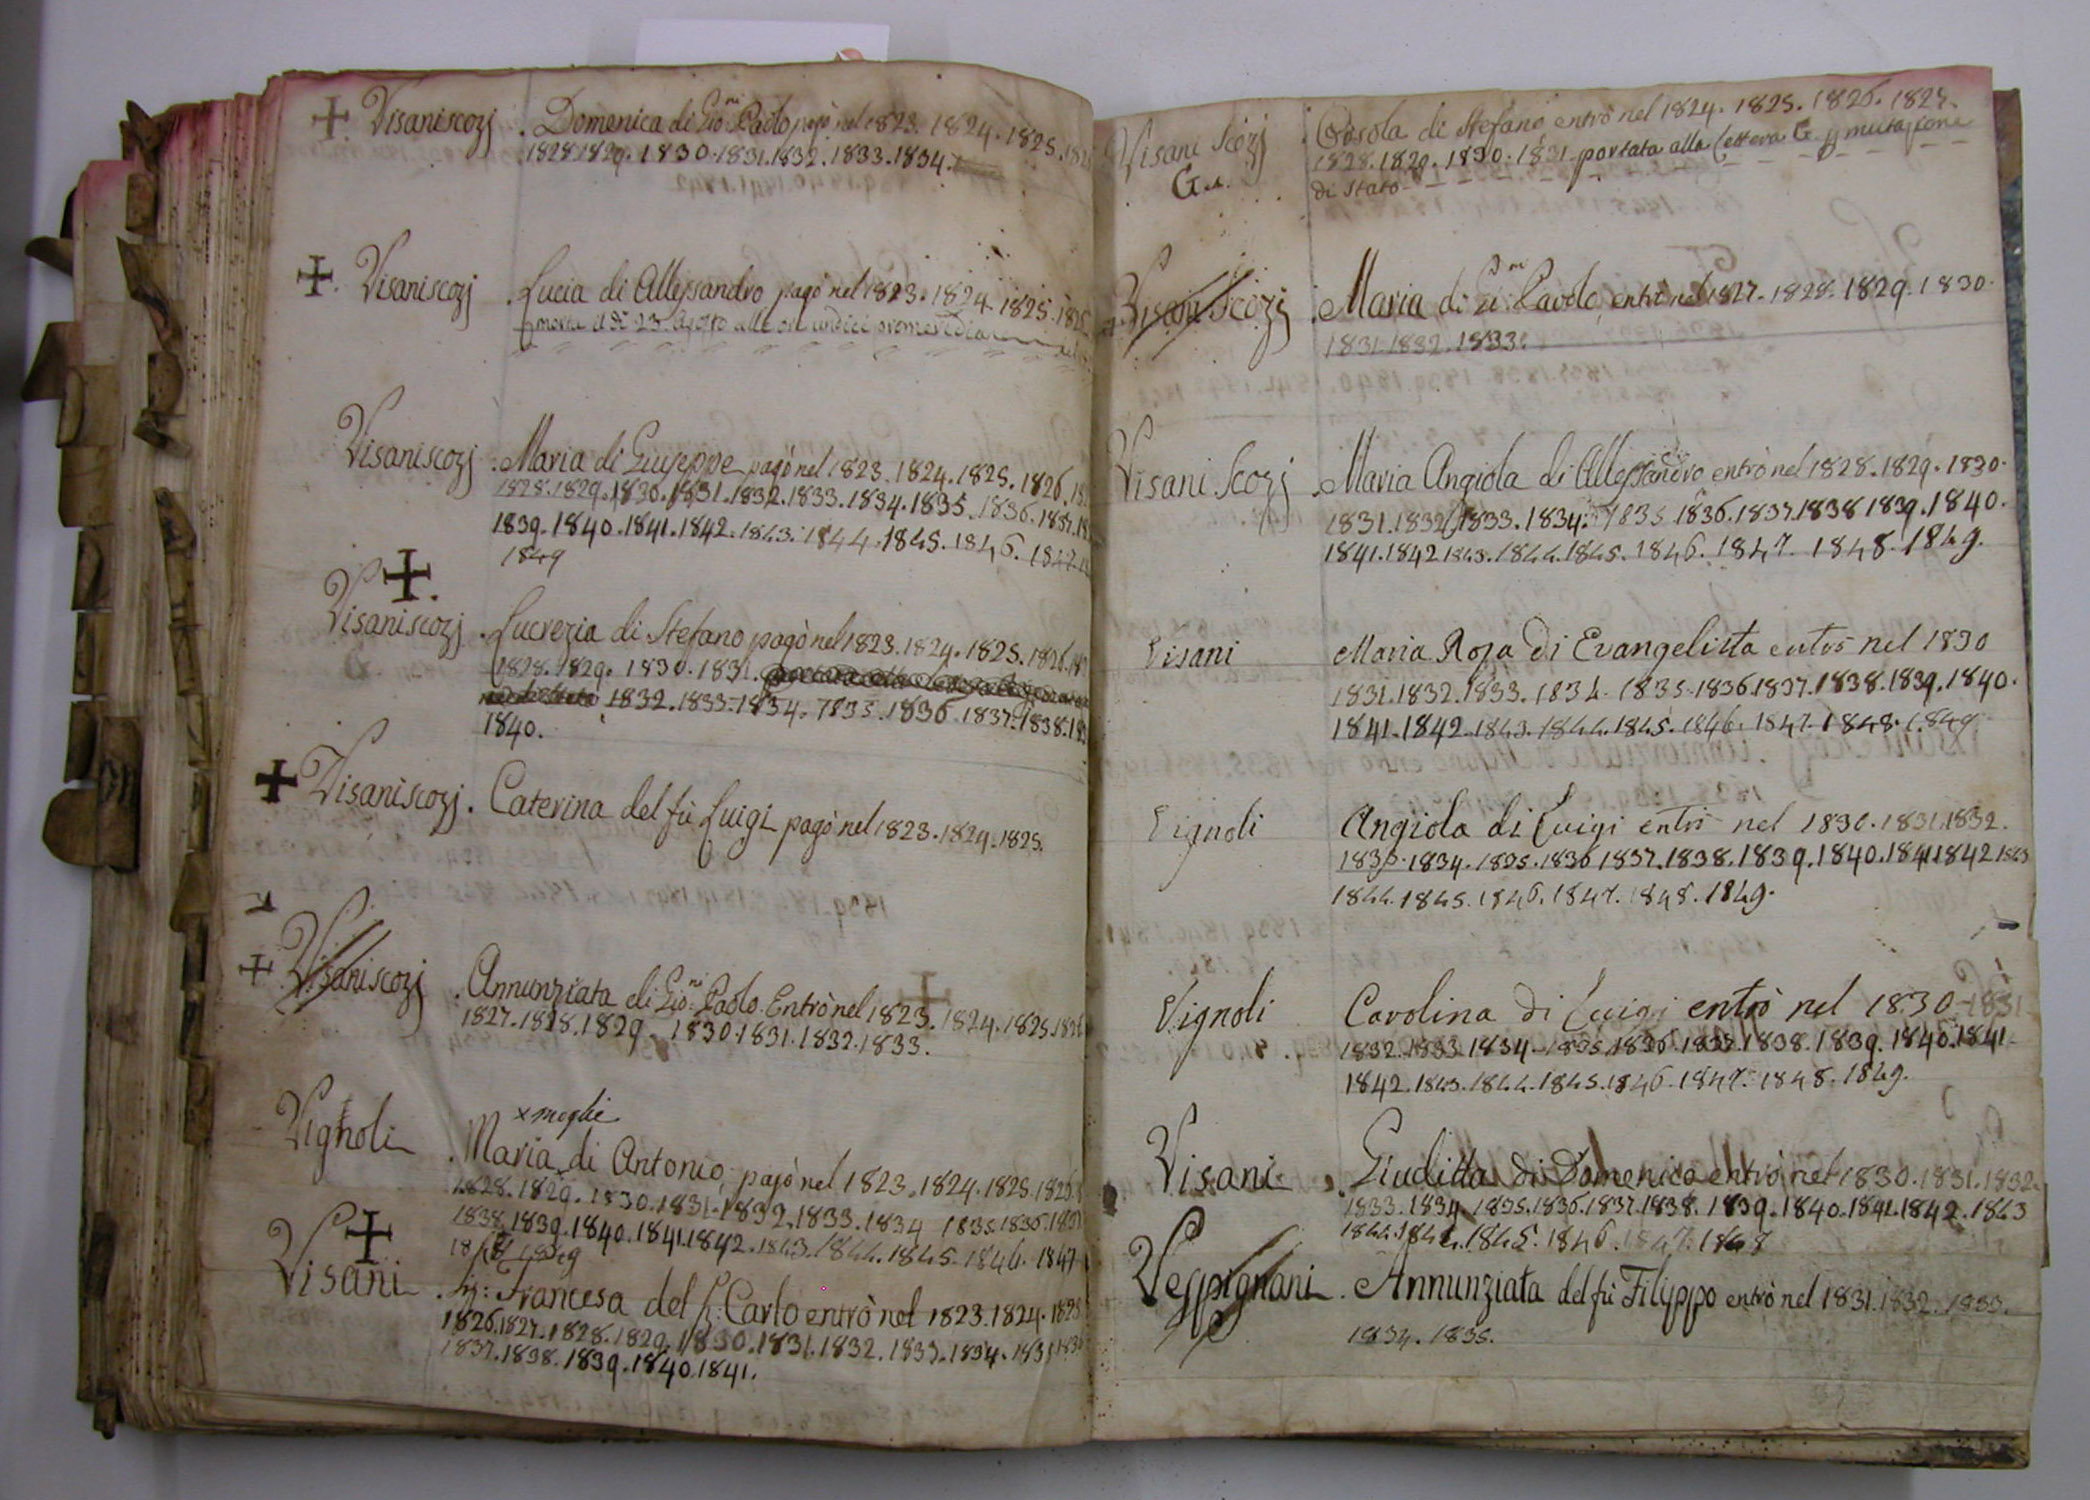 Visaniscozj . Domenica di Gio.ni Paolo pagò nel 1823. 1824. 1825.
1828. 1829. 1830. 1831. 1832. 1833. 1834.
Visaniscozj . Lucia di Allessandro pagò nel 1823. 1824. 1825.
morta il dì 23. Agosto alle ore undici
Visaniscozj . Maria di Giuseppe pagò nel 1823. 1824. 1825. 1826.
1828. 1829. 1830. 1831. 1832. 1833. 1834. 1835. 1836. 1837.
1839. 1840. 1841. 1842. 1843. 1844. 1845. 1846. 1847.
1849
Visaniscozj . Lucrezia di Stefano pagò nel 1823. 1824. 1825. 1826.
1828. 1829. 1830. 1831.
1832. 1833. 1834. 1835. 1836. 1837. 1838.
1840.
Visaniscozj . Caterina del fù Luigi pagò nel 1823. 1824. 1825.
Visaniscozj . Annunziata di Gio.ni Paolo Entrò nel 1823. 1824. 1825. 1826
1827. 1828. 1829. 1830. 1831. 1832. 1833.
x moglie
Vignoli . Maria di Antonio pagò nel 1823. 1824. 1825. 1826
1828. 1829. 1830. 1831. 1832. 1833. 1834 1835. 1836. 1837
1838. 1839. 1840. 1841. 1842. 1843. 1844. 1845. 1846. 1847
1848 1849
Visani . Francesa del fù Carlo entrò nel 1823. 1824. 1825
1826. 1827. 1828. 1829. 1830. 1831. 1832. 1833. 1834. 1835 1836
1837. 1838. 1839. 1840. 1841.
Visani Scozj Orsola di Stefano entrò nel 1824. 1825. 1826. 1827.
1828. 1829. 1830. 1831. portata alla Lettera G. p mutazione
G. di Stato
Visani Scozj . Maria di Paolo, entrò nel 1827. 1828. 1829. 1830.
1831. 1832. 1833.
Visani Scozj . Maria Angiola di Allessandro entrò nel 1828. 1829. 1830.
1831. 1832. 1833. 1834. 1835. 1836. 1837. 1838 1839. 1840.
1841. 1842. 1843. 1844. 1845. 1846. 1847. 1848. 1849.
Visani Maria Rosa di Evangelista entrò nel 1830
1831. 1832. 1833. 1834. 1835. 1836. 1837. 1838. 1839. 1840.
1841. 1842. 1843. 1844. 1845. 1846. 1847. 1848. 1849
Vignoli Angiola di Luigi entrò nel 1830. 1831. 1832.
1833. 1834. 1835. 1836 1837. 1838. 1839. 1840. 1841. 1842 1843
1844. 1845. 1846. 1847. 1848. 1849.
Vignoli Carolina di Luigi entrò nel 1830. 1831
1832. 1833. 1834. 1835. 1836. 1837. 1838. 1839. 1840. 1841.
1842. 1843. 1844. 1845. 1846. 1847. 1848. 1849.
Visani . Giuditta di Domenico entrò nel 1830. 1831. 1832.
1833. 1834. 1835. 1836. 1837. 1838. 1839. 1840. 1841. 1842. 1843
1844. 1845. 1846. 1847. 1848
Vespignani . Annunziata del fù Filippo entrò nel 1831. 1832. 1833.
1834. 1835.